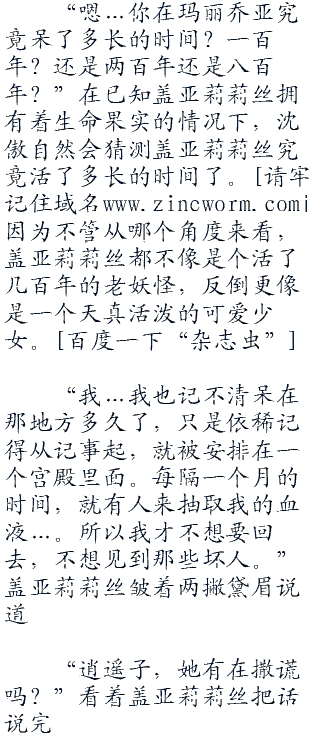 “嗯…你在玛丽乔亚究
竟呆了多长的时间？一百
年？还是两百年还是八百
年？”在已知盖亚莉莉丝拥
有着生命果实的情况下，沈
傲自然会猜测盖亚莉莉丝究
竟活了多长的时间了。[请牢
记住域名www.zincworm.com|
因为不管从哪个角度来看，
盖亚莉莉丝都不像是个活了
几百年的老妖怪，反倒更像
是一个天真活泼的可爱少
女。[百度一下“杂志虫”]
“我…我也记不清呆在
那地方多久了，只是依稀记
得从记事起，就被安排在一
个宫殿里面。每隔一个月的
时间，就有人来抽取我的血
液…。所以我才不想要回
去，不想见到那些坏人。”
盖亚莉莉丝皱着两撇黛眉说
道
“逍遥子，她有在撒谎
吗？”看着盖亚莉莉丝把话
说完